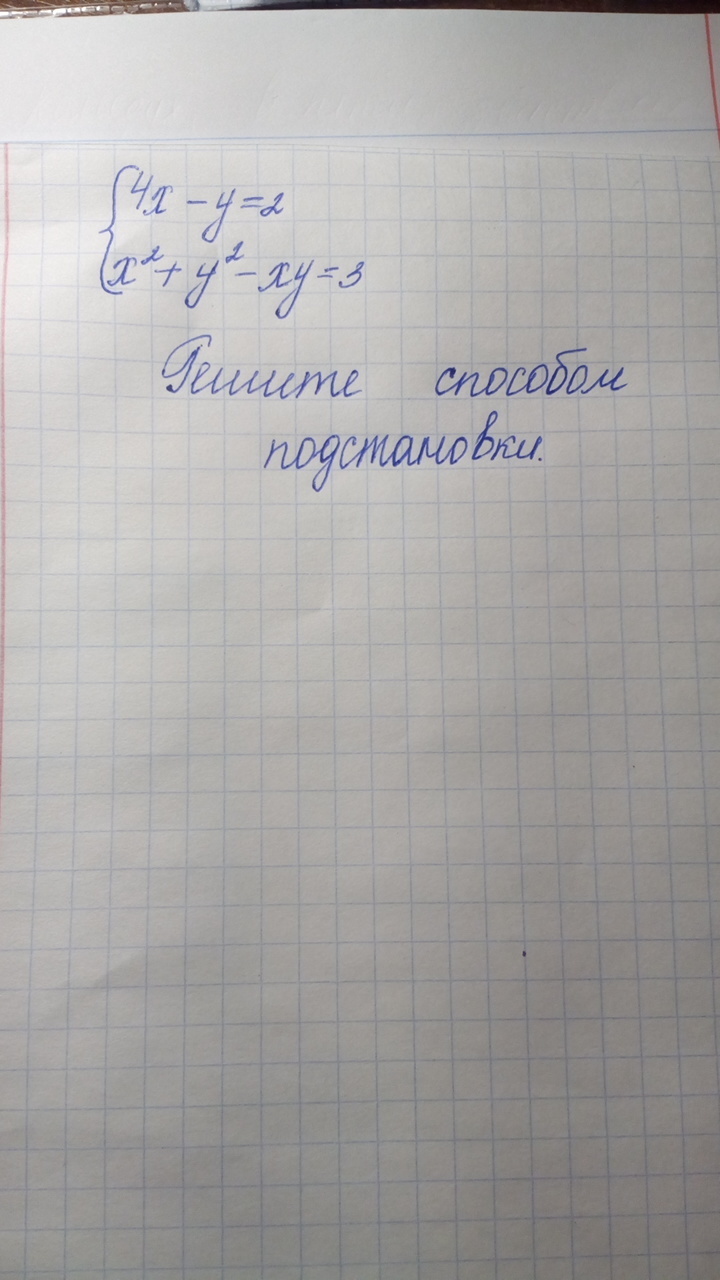 {4x - y = 2
x² + y² - xy = 3
Решите способом
подстановки.